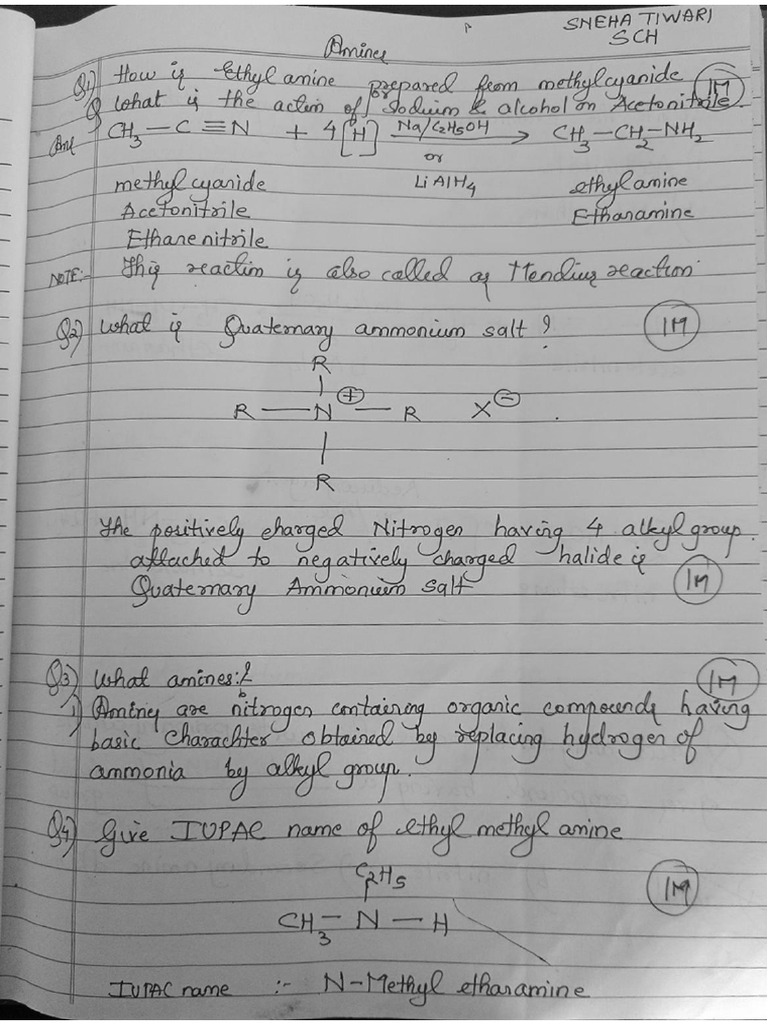 SNEHA TIWARI
SCH
Amines
Q1) How is Ethyl amine prepared from methylcyanide 1M
Q What is the action of Sodium & alcohol on Acetonitrile
Ans CH3 — C ≡ N + 4 [H] Na/C2H5OH → CH3 — CH2 — NH2
or
LiAlH4
methyl cyanide ethylamine
Acetonitrile Ethanamine
Ethanenitrile
NOTE:- This reaction is also called as Mendius reaction
Q2) What is Quaternary ammonium salt ? 1M
R
R — N ⊕ — R X ⊖
R
The positively charged Nitrogen having 4 alkyl group.
attached to negatively charged halide is
Quaternary Ammonium salt 1M
Q3) What amines:? 1M
i) Amines are nitrogen containing organic compounds having
basic charachter obtained by replacing hydrogen of
ammonia by alkyl group.
Q4) Give IUPAC name of ethyl methyl amine
C2H5 1M
CH3 — N — H
IUPAC name :- N-Methyl ethanamine